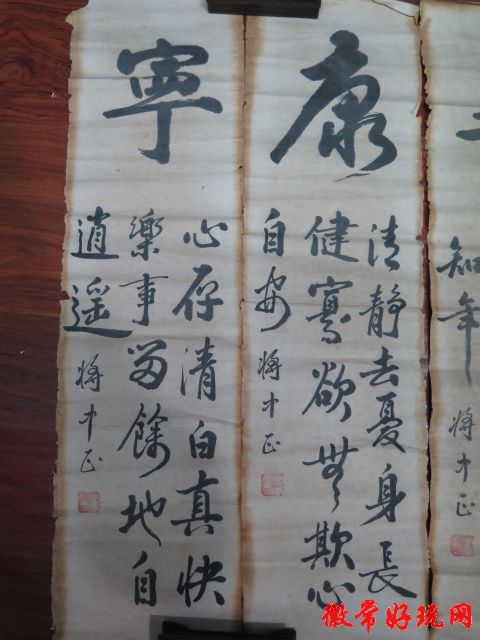 知年
蔣中正
康
清靜去憂身長
健寡欲無欺心
自安
蔣中正
寧
心存清白真快
樂事留餘地自
逍遥
蔣中正
徽常好玩网